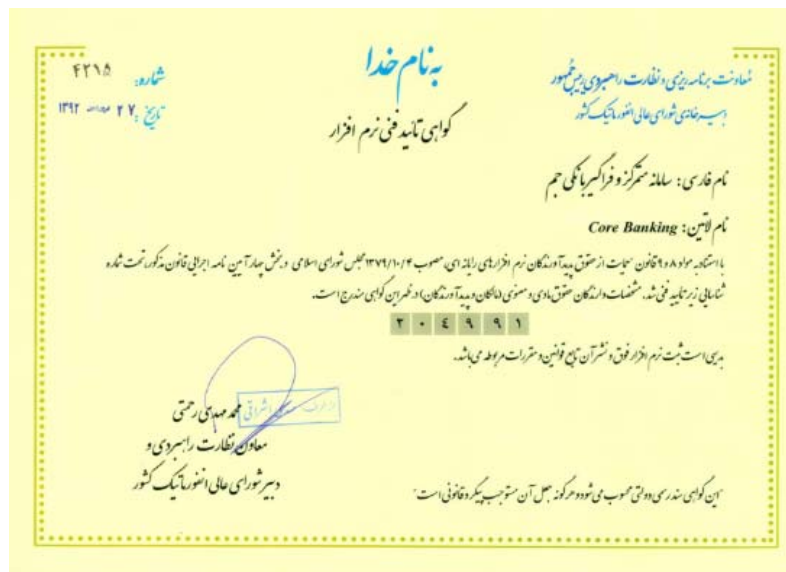 به نام خدا
معاونت برنامه‌ریزی و نظارت راهبردی رییس جمهور
دبیرخانه‌ی شورای عالی انفورماتیک کشور
شماره: ۴۲۱۵
تاریخ: ۲۷ ۱۳۹۲
گواهی تائید فنی نرم افزار
نام فارسی: سامانه متمرکز و فراگیر بانکی جم
نام لاتین: Core Banking
با استناد به مواد ۸ و ۹ قانون حمایت از حقوق پدیدآورندگان نرم افزارهای رایانه ای، مصوب ۱۳۷۹/۱۰/۴ مجلس شورای اسلامی و بخش چهار آیین نامه اجرایی قانون مذکور، تحت شماره
شناسایی زیر تایید فنی شد. مشخصات دارندگان حقوق مادی و معنوی (مالکان و پدیدآورندگان) در ظهر این گواهی مندرج است.
۲۰۴۹۹۱
بدیهی است ثبت نرم افزار فوق و نشر آن تابع قوانین و مقررات مربوطه می باشد.
از طرف
محمد مهدی رحمتی
معاون نظارت راهبردی و
دبیر شورای عالی انفورماتیک کشور
"این گواهی سندرسمی دولتی محسوب می شود و هرگونه جعل آن مستوجب پیگرد قانونی است"